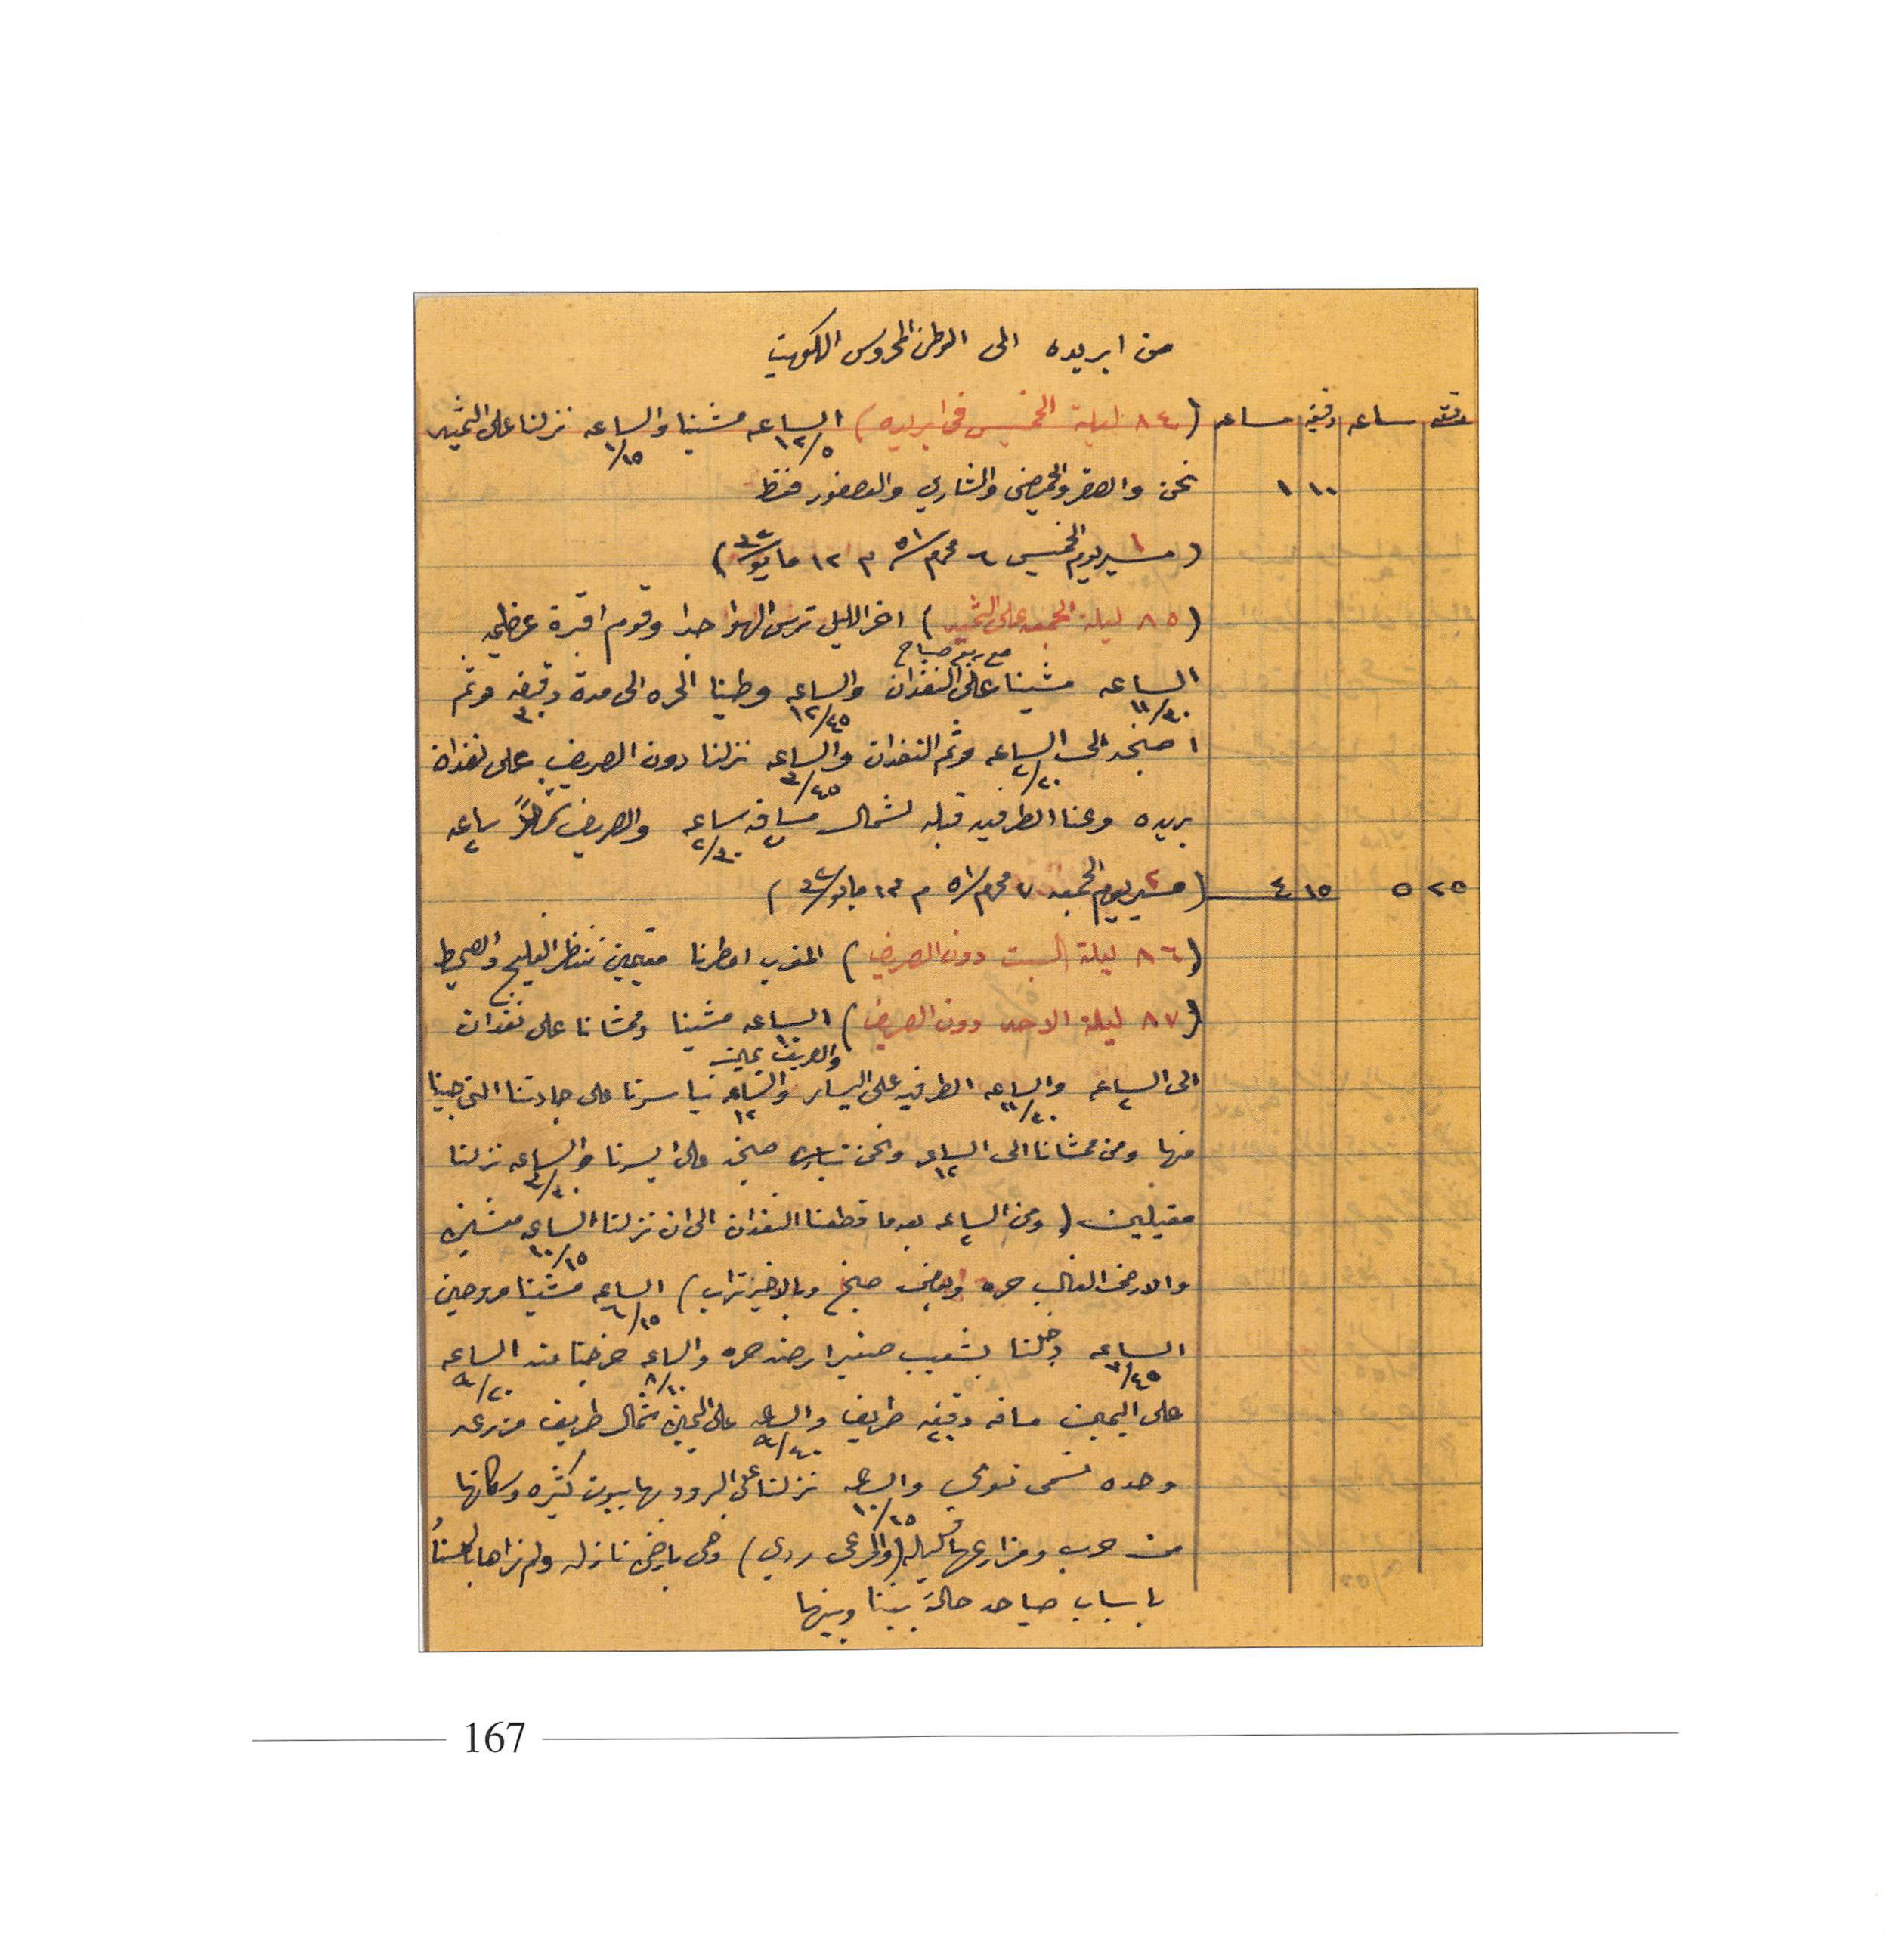 من ابريده الى الوطن المحروس الكويت
دقيقه ساعه دقيقه ساعه (٨٤ ليلة الخميس في ابريده) الساعه ١٢/٥ مشينا والساعه ١/١٥ نزلنا على الثميد
١٠ ١ نحن والصقر والحميضي والشاري والعصفور فقط
(١ مسير يوم الخميس ٦ محرم ٥١ م ١٢ مايو ٣٢)
(٨٥ ليلة الجمعه على الثميد) اخر الليل ترس الهوا جدا وقوم اقبرة عظيمه
الساعه ١١/٣٠ مع ربع صباح مشينا على النفدان والساعه ١٢/٤٥ وطينا الحره الى مدة دقيقه ٣٠ وثم
اصخد الى الساعه ٢/٢٠ وثم النفدان والساعه ٣/٤٥ نزلنا دون الصريف على نفدان
بريده وعنا الطرفيه قبله لشمال مسافه ساعه ٢/٣٠ والصريف شمالاً ساعه ٢
٢٥ ٥ ١٥ ٤ (٢ مسير يوم الجمعه ٧ محرم ٥١ م ١٣ مايو ٣٢)
(٨٦ ليلة السبت دون الصريف) المغرب امطرنا مقيمين ننتظر الفليج والصميط
(٨٧ ليلة الاحد دون الصريف) الساعه ١٠ مشينا وممشانا على نفدان
الى الساعه ٢ والساعه ١١/٣٠ الطرفيه على اليسار والصريف يمين والساعه ١٢ تياسرنا على جادتنا التي جينا
منها ومن ممشانا الى الساعه ١٢ ونحن صخد على ايسرنا والساعه ٣/٣٠ نزلنا
مقيلين (ومن الساعه ٢ بعد ما قطعنا النفدان الى ان نزلنا الساعه ١٠/١٥ معشين
والارض الغالب حره وبعض صخد وبالاخير تراب) الساعه ٦/١٥ مشينا مروحين
الساعه ٧/٤٥ دخلنا بشعيب صغير ارضه حره والساعه ٨/١٠ خرجنا منه الساعه ٩/٢٠
على اليمين مسافه دقيقه ٢٠ طريف والساعه ٩/٤٠ على اليمين شمال طريف مزرعه
وحده تسمى والساعه ١٠/١٥ نزلنا على البرود بها بيوت كثيره وسكانها
من حرب ومزارعها قليله (والمرعى ردي) وهي بارض نازله ولم نراها
باسباب صياهد حالة بيننا وبينها
167